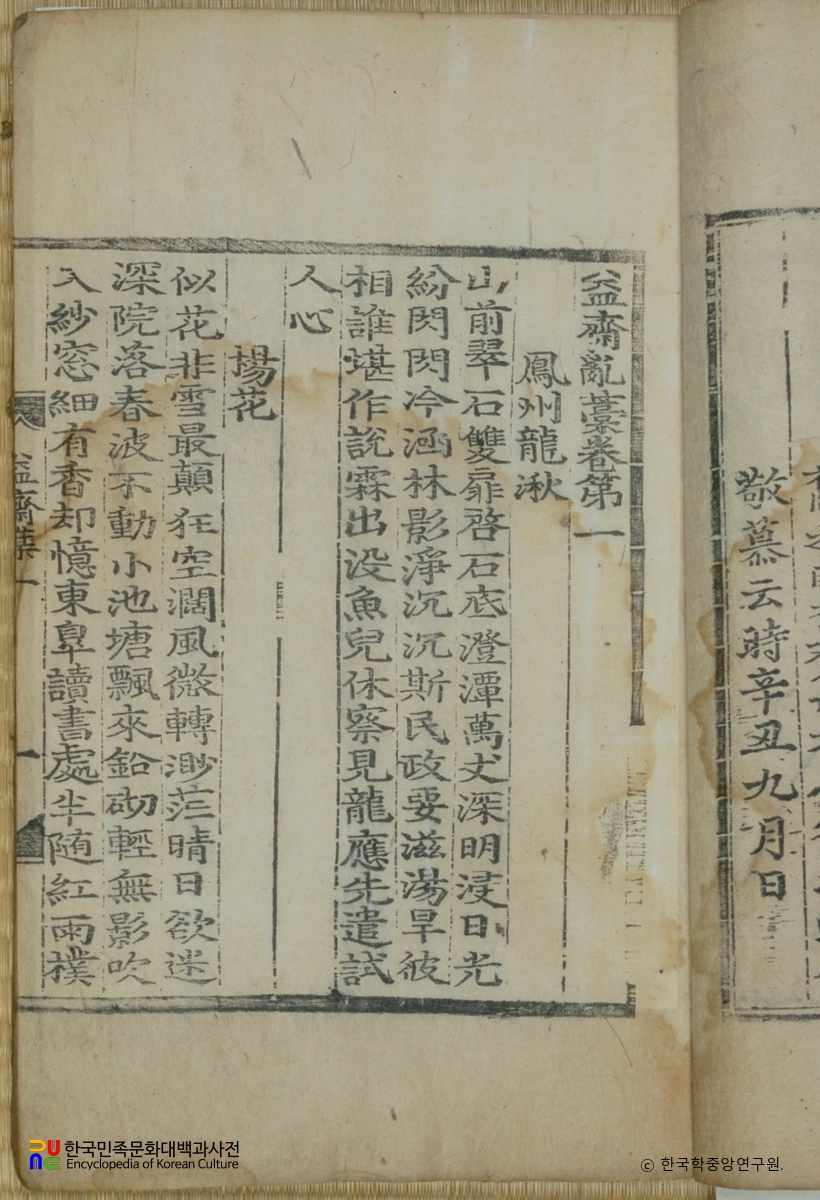 敬慕云時辛丑九月日
益齋亂藁卷第一
鳳州龍湫
山前翠石雙扉啓石底澄潭萬丈深明浸日光
紛閃閃冷涵林影淨沉沉斯民政要滋湯旱彼
相誰堪作說霖出没魚兒休察見龍應先遣試
人心
楊花
似花非雪最顚狂空濶風微轉渺茫晴日欲迷
深院落春波不動小池塘飄來鉛砌輕無影吹
入紗窓細有香却憶東臯讀書處半随紅雨撲
益齋藁一
一
한국민족문화대백과사전
Encyclopedia of Korean Culture
© 한국학중앙연구원.